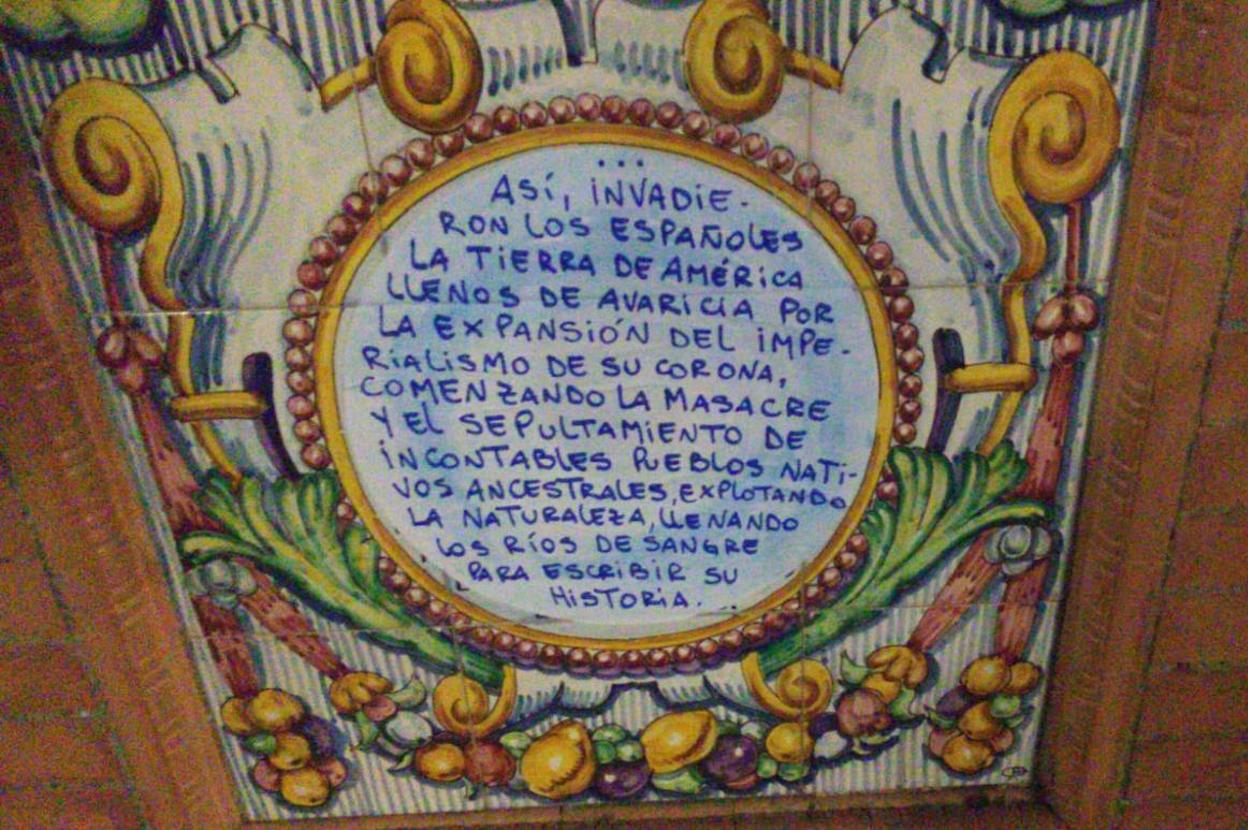 ...
ASÍ, INVADIE-
RON LOS ESPAÑOLES
LA TIERRA DE AMÉRICA
LLENOS DE AVARICIA POR
LA EXPANSIÓN DEL IMPE-
RIALISMO DE SU CORONA,
COMENZANDO LA MASACRE
Y EL SEPULTAMIENTO DE
INCONTABLES PUEBLOS NATI-
VOS ANCESTRALES, EXPLOTANDO
LA NATURALEZA, LLENANDO
LOS RÍOS DE SANGRE
PARA ESCRIBIR SU
HISTORIA...